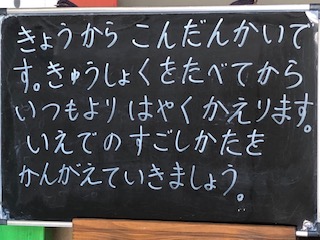 きょうから こんだんかいで
す。きゅうしょくをたべてから
いつもより はやく かえります。
いえでの すごしかたを
かんがえていきましょう。